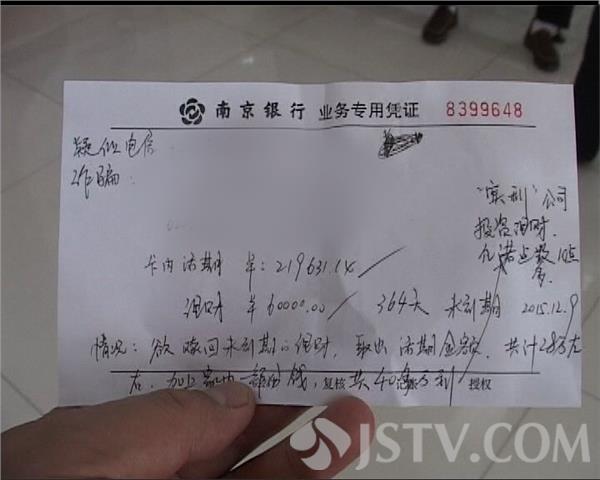 南京银行 业务专用凭证 8399648
疑似电信
诈骗:
"宝利"公司
投资理财.
允诺点数10点
多.
卡内活期 ¥:219631.14
理财 ¥60000.00 364天 未到期 2015.12.9
情况:欲赎回未到期の理财,取出活期金额.共计28万左
右.加上家内 钱,共40多万
复核 授权
JSTV.COM